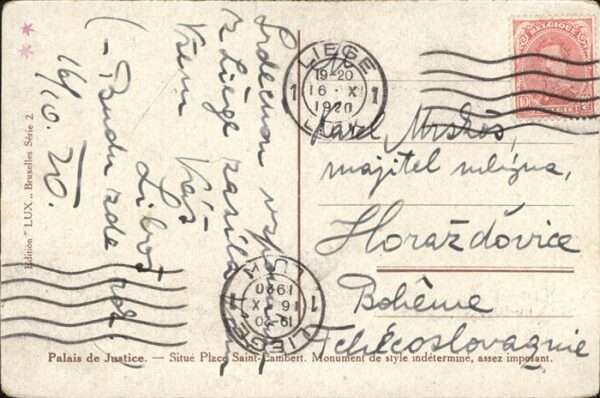 16/10.20.
Srdečnou
z Liège zasílá
Všem Vás
(-Budu zde
Edition "LUX" Bruxelles Série 2
LIEGE
19-20
16·X
1920
1 1
BELGIQUE
10 10
BELGIE
Karel
majitel mlýna,
Horažďovice
Bohême
Tchécoslovaquie
LIEGE
19-20
16 X
1920
1 1
Palais de Justice. — Situé Place Saint-Lambert. Monument de style indéterminé, assez imposant.